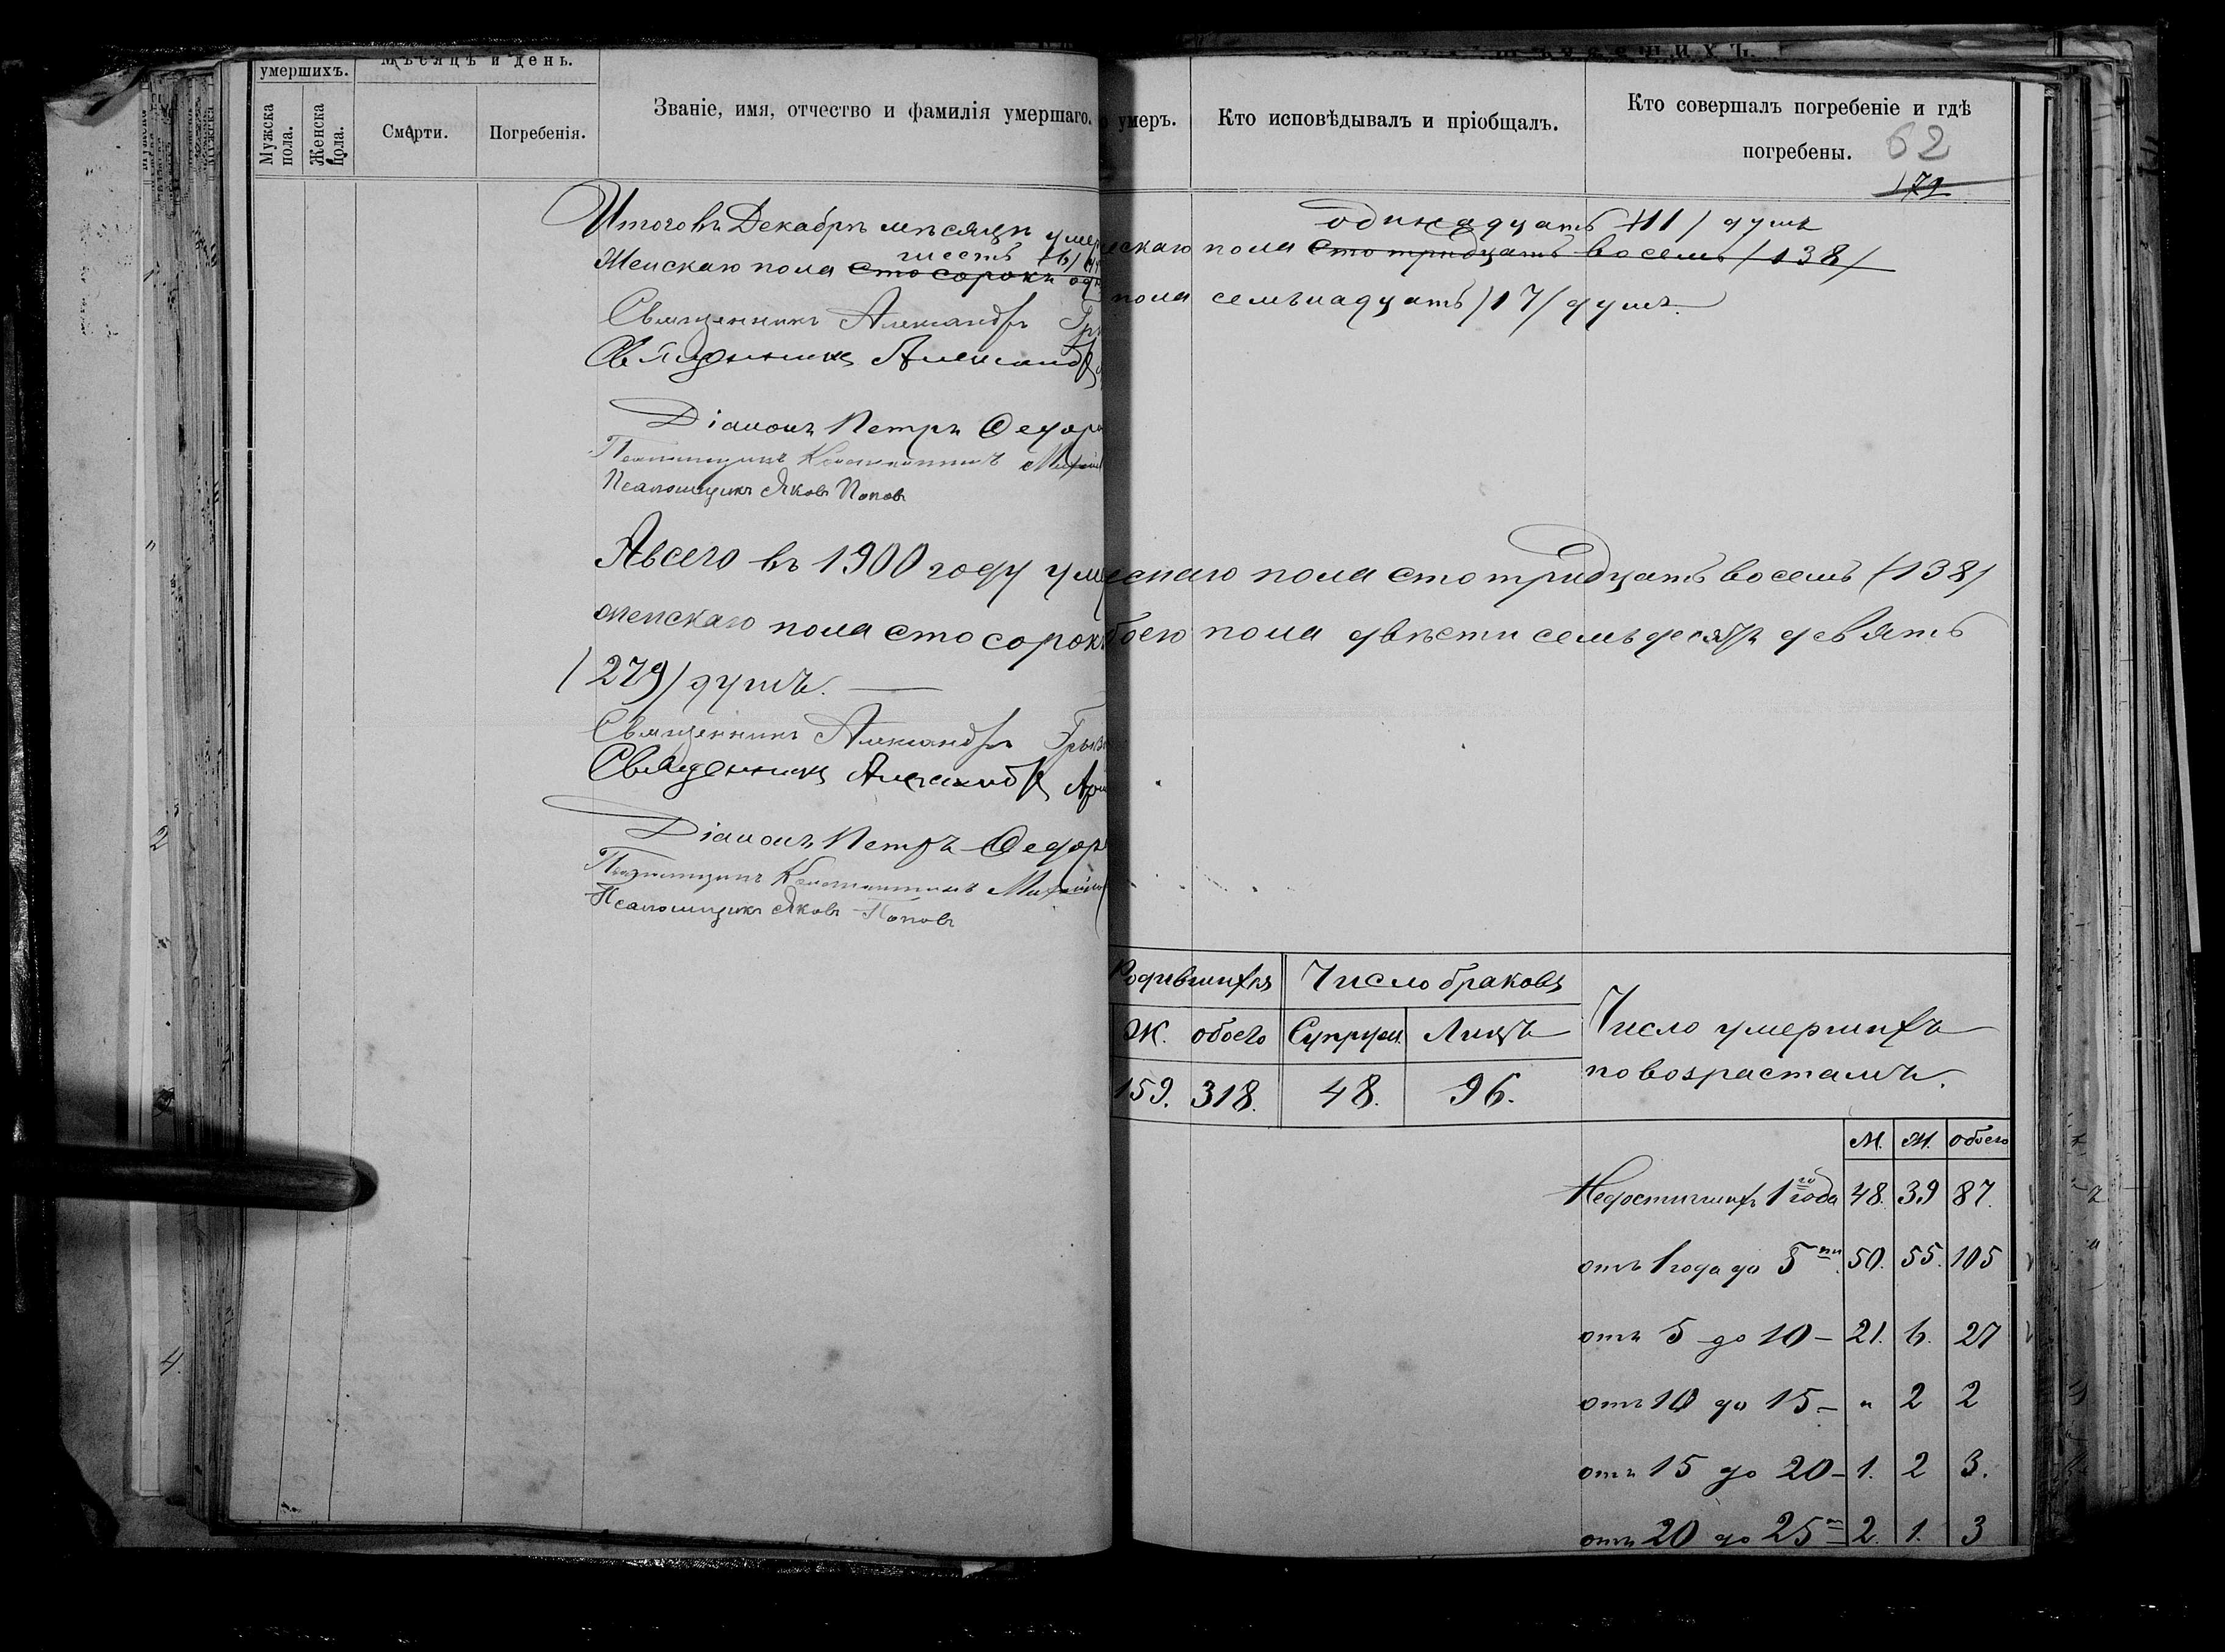 умершихъ.
Мѣсяцъ и день.
Мужска пола.
Женска пола.
Смерти.
Погребенія.
Званіе, имя, отчество и фамилія умершаго.
умеръ.
Кто исповѣдывалъ и пріобщалъ.
Кто совершалъ погребеніе и гдѣ
погребены.
62
171
Итого въ Декабрѣ мѣсяцѣ умер
шесть /6/
Женскаго пола сто сорокъ одн
Священникъ Александръ
Священникъ Александръ
Діаконъ Петръ Ѳедор
Псаломщикъ Константинъ Михайл
Псаломщикъ Яковъ Поповъ
А всего въ 1900 году уме
женскаго пола сто сорокъ
/279/ душъ.
Священникъ Александръ
Священникъ Александръ
Діаконъ Петръ Ѳедор
Псаломщикъ Константинъ Михайл
Псаломщикъ Яковъ Поповъ
одинадцать /11/ душъ
ескаго пола сто тридцать восемь /138/
пола семьнадцать /17/ душъ.
ескаго пола сто тридцать восемь /138/
боего пола двѣсти семьдесятъ девять
Родившихся
Число браковъ
Число умершихъ
по возрастамъ.
Ж. обоего Супруж. Лицъ
159. 318. 48. 96.
М. Ж. обоего
Недостигших 1го года 48. 39 87.
отъ 1 года до 5ти 50. 55. 105
отъ 5 до 10 – 21. 6. 27
отъ 10 до 15 – " 2 2
отъ 15 до 20 – 1. 2 3.
отъ 20 до 25 2. 1. 3